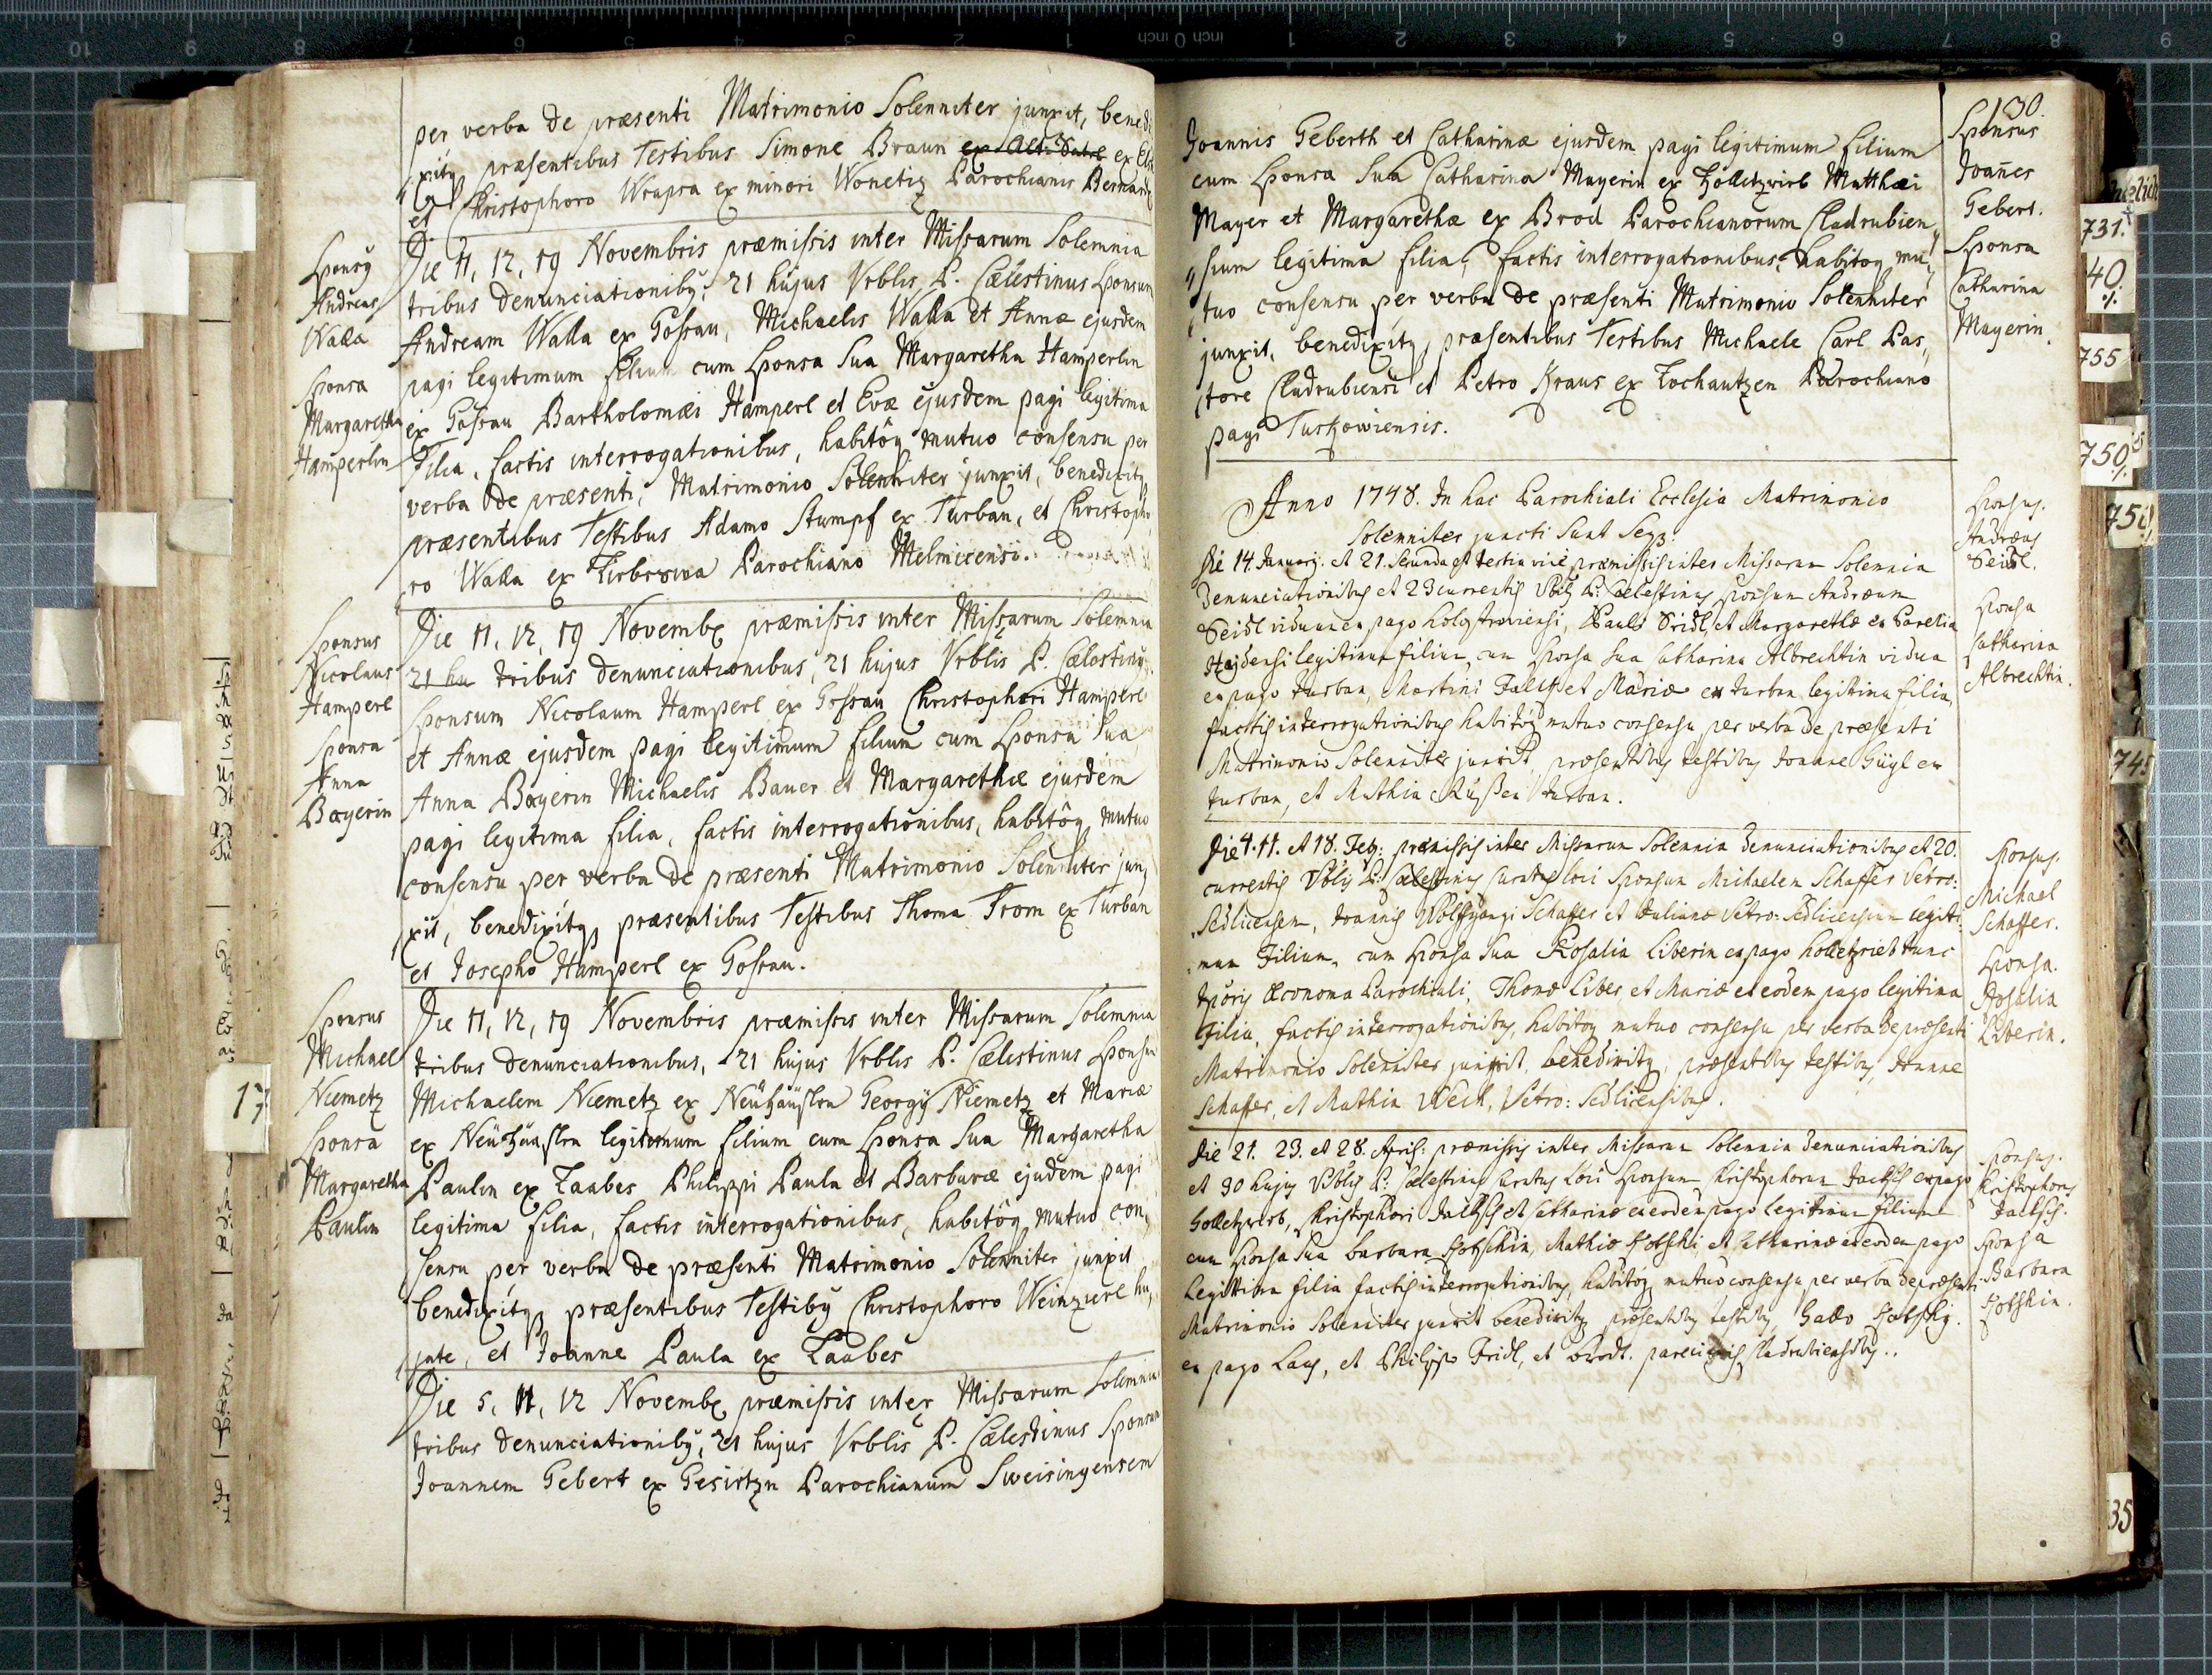 per verba de præsenti Matrimonio Solenniter junxit, bene
xitq præsentibus Testibus Simone Braun ex
et Christophoro Wrapra ex minori Wonetiz Parochianis
Sponsq
Andreas
Walla
Sponsa
Margaretha
Hamperlin
Die 11, 12, 19 Novembris præmissis inter Missarum Solemnia
tribus denunciationibq, 21 hujus Vrblis P. Cælestinus Sponsum
Andream Walla ex Gossau, Michaelis Walla et Annæ ejusdem
pagi legitimum filium cum Sponsa Sua Margaretha Hamperlin
ex Gossau Bartholomæi Hamperl et Evæ ejusdem pagi legitima
Filia, factis interrogationibus, habitôq mutuo consensu per
verba de præsenti, Matrimonio Solenniter junxit, benedixitq
præsentibus Testibus Adamo Stumpf ex Turban, et Christopho
ro Walla ex Parochiano Melmicensi.
Sponsus
Nicolaus
Hamperl
Sponsa
Anna
Bayerin
Die 11, 12, 19 Novemb præmissis inter Missarum Solemnia
21 hu tribus denunciationibus, 21 hujus Vrblis P. Cælestinq
Sponsum Nicolaum Hamperl ex Gossau Christophori Hamperl
et Annæ ejusdem pagi legitimum filium cum Sponsa Sua
Anna Bayerin Michaelis Bauer et Margarethæ ejusdem
pagi legitima filia, factis interrogationibus, habitôq mutuo
consensu per verba de præsenti Matrimonio Solenniter jun
xit, benedixitq præsentibus Testibus Thoma Trom ex Turban
et Josepho Hamperl ex Gossau.
Sponsus
Michael
Niemetz
Sponsa
Margaretha
Paulin
Die 11, 12, 19 Novembris præmissis inter Missarum Solemnia
tribus denunciationibus, 21 hujus Vrblis P. Cælestinus Sponsu
Michaelem Niemetz ex Neühäuslen Georgÿ Niemetz et Mariæ
ex Neühäuslen legitimum filium cum Sponsa Sua Margaretha
Paulin ex Zaabes Philippi Paula et Barbaræ ejusdem pagi
legitima filia, factis interrogationibus, habitôq mutuo con
sensu per verba de præsenti Matrimonio Solenniter junxit
benedixitq præsentibus Testibq Christophoro Weinzierl hu
jate, et Joanne Paula ex Zaabes
Die 5, 11, 12 Novemb præmissis inter Missarum Solemnia
tribus denunciationibq, 21 hujus Vrblis P. Cælestinus Sponsum
Joannem Gebert ex Gesirtzn Parochianum Sweisingensem
130.
Joannis Geberth et Catharinæ ejusdem pagi legitimum filium
cum Sponsa Sua Catharina Mayerin ex Hölletzrieb Matthæi
Mayer et Margarethæ ex Brod Parochianorum Cladrubien
sium legitima filia, factis interrogationibus, habitoq mu
tuo consensu per verba de præsenti Matrimonio Solenniter
junxit, benedixitq præsentibus Testibus Michaele Carl Pas
tore Cladrubiensi et Petro Kraus ex Zochautzen Parochiano
pagi Tuskowiensis.
Sponsus
Joañes
Gebert.
Sponsa
Catharina
Mayerin.
Anno 1748. In hac Parochiali Ecclesia Matrimonio
Solemniter juncti Sunt
Sponsus.
Andreas
Seidl.
Sponsa
Catharina
Albrechtin.
Die 14. Januarij et 21. Secunda et tertia vice præmissis inter Missarum Solennia
Denunciationibus et 23 currentis Vblis P. Cælestinus Sponsum Andream
Seidl viduum ex pago, Pauli Seidl, et Margarethæ ex
legitimum filium, cum Sponsa Sua Catharina Albrechtin vidua
ex pago Turban, Martini et Mariæ ex Turban legitima filia,
factis interrogationibus habitoq mutuo consensu per verba de præsenti
Matrimonio Solenniter junxit, præsentibus testibus Joanne Gügl ex
Turban, et Mathia ex Turban.
Die 4. 11. et 18. Feb: præmissis inter Missarum Solennia Denunciationibus et 20.
currentis Vblis P. Cælestinus Curatus loci Sponsum Michaelem Schaffer Vetro:
Sedlicensem, Joannis Wolffgangi Schaffer et Julianæ Vetro: Sedlicensium legiti
mum Filium, cum Sponsa Sua Rosalia Liberin ex pago Holletzrieb tunc
Œconoma Parochiali, Thomæ Liber et Mariæ ex eodem pago legitima
Filia, factis interrogationibus, habitoq mutuo consensu per verba de præsenti
Matrimonio Solenniter junxit, benedixitq præsentibus testibus, Joanne
Schaffer, et Mathia Wech, Vetro: Sedlicensibus.
Sponsus.
Michael
Schaffer.
Sponsa.
Rosalia
Liberin.
Die 21. 23. et 28. April: præmissis inter Missarum Solennia Denunciationibus
et 30 hujus Vblis P: Cælestinus Curatus Loci Sponsum Kristophorum ex pago
Golletzrieb, Kristophori et Catharinæ ex eodem pago legitimum filium
cum Sponsa Sua Barbara Hotschkin, Mathiæ et Catharinæ ex eodem pago
Legittima filia factis interrogationibus, habitóq mutuo consensu per verba de præsenti
Matrimonio Solenniter junxit benedixitq præsentibus testibus, Gallo
ex pago Laas, et Philippo Fridl, Cladrubiensibus.
Sponsus.
Kristophorus
Sponsa
Barbara
Hotschkin.
731.
40
755
750
745
735
17